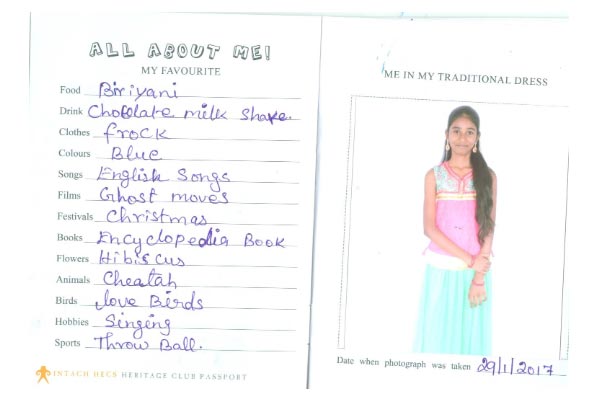 ALL ABOUT ME!
MY FAVOURITE
Food Biriyani
Drink Chocolate milk shake.
Clothes frock
Colours Blue
Songs English Songs
Films Ghost moves
Festivals Christmas
Books Encyclopedia Book
Flowers Hibiscus
Animals Cheatah
Birds Love Birds
Hobbies Singing
Sports Throw Ball.
INTACH HECS HERITAGE CLUB PASSPORT
ME IN MY TRADITIONAL DRESS
Date when photograph was taken 29/1/2017